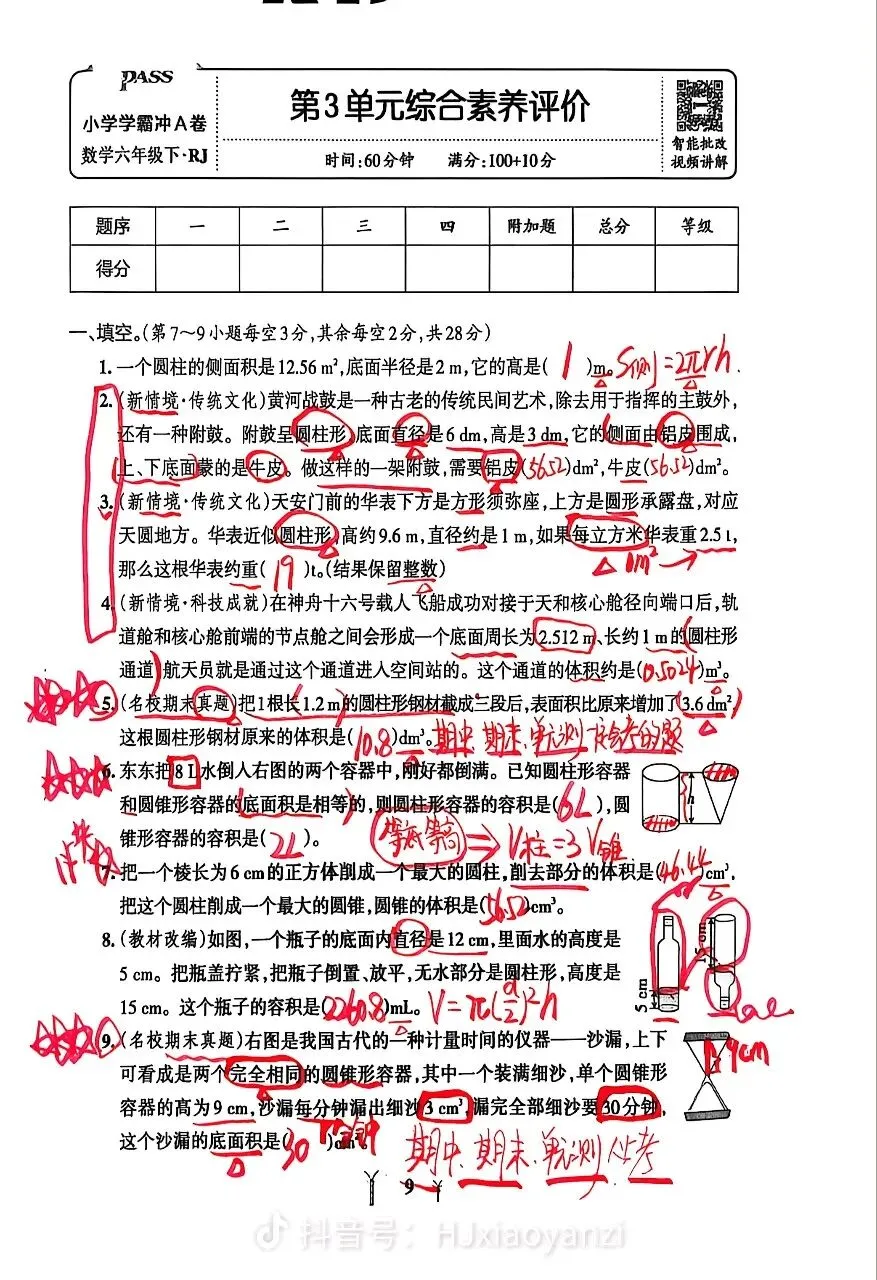 PASS
小学学霸冲A卷
数学六年级下·RJ
第3单元综合素养评价
时间:60分钟 满分:100+10分
智能批改
视频讲解
题序 一 二 三 四 附加题 总分 等级
得分
一、填空。(第7～9小题每空3分,其余每空2分,共28分)
1. 一个圆柱的侧面积是12.56 m²,底面半径是2 m,它的高是( 1 )m。 S侧=2πrh
2. (新情境·传统文化)黄河战鼓是一种古老的传统民间艺术,除去用于指挥的主鼓外,
还有一种附鼓。附鼓呈圆柱形,底面直径是6 dm,高是3 dm,它的侧面由铝皮围成,
上、下底面蒙的是牛皮。做这样的一架附鼓,需要铝皮(56.52)dm²,牛皮(56.52)dm²。
3. (新情境·传统文化)天安门前的华表下方是方形须弥座,上方是圆形承露盘,对应
天圆地方。华表近似圆柱形,高约9.6 m,直径约是1 m,如果每立方米华表重2.5 t,
那么这根华表约重( 19 )t。(结果保留整数)
4. (新情境·科技成就)在神舟十六号载人飞船成功对接于天和核心舱径向端口后,轨
道舱和核心舱前端的节点舱之间会形成一个底面周长为2.512 m、长约1 m的圆柱形
通道,航天员就是通过这个通道进入空间站的。这个通道的体积约是(0.5024)m³。
5. (名校期末真题)把1根长1.2 m的圆柱形钢材截成三段后,表面积比原来增加了3.6 dm²,
这根圆柱形钢材原来的体积是(10.8)dm³。期中、期末、单元测
6. 东东把8 L水倒入右图的两个容器中,刚好都倒满。已知圆柱形容器
和圆锥形容器的底面积是相等的,则圆柱形容器的容积是( 6L ),圆
锥形容器的容积是( 2L )。 等底等高 ⇒ V柱=3V锥
h
7. 把一个棱长为6 cm的正方体削成一个最大的圆柱,削去部分的体积是(46.44)cm³,
把这个圆柱削成一个最大的圆锥,圆锥的体积是(56.52)cm³。
8. (教材改编)如图,一个瓶子的底面内直径是12 cm,里面水的高度是
5 cm。把瓶盖拧紧,把瓶子倒置、放平,无水部分是圆柱形,高度是
15 cm。这个瓶子的容积是(2260.8)mL。 V=π(d/2)²h
5 cm
15 cm
9. (名校期末真题)右图是我国古代的一种计量时间的仪器——沙漏,上下
可看成是两个完全相同的圆锥形容器,其中一个装满细沙,单个圆锥形
容器的高为9 cm,沙漏每分钟漏出细沙3 cm³,漏完全部细沙要30分钟,
这个沙漏的底面积是( 30 )cm²。
9cm
期中、期末、单元测必考
9
抖音号：HJxiaoyanzi